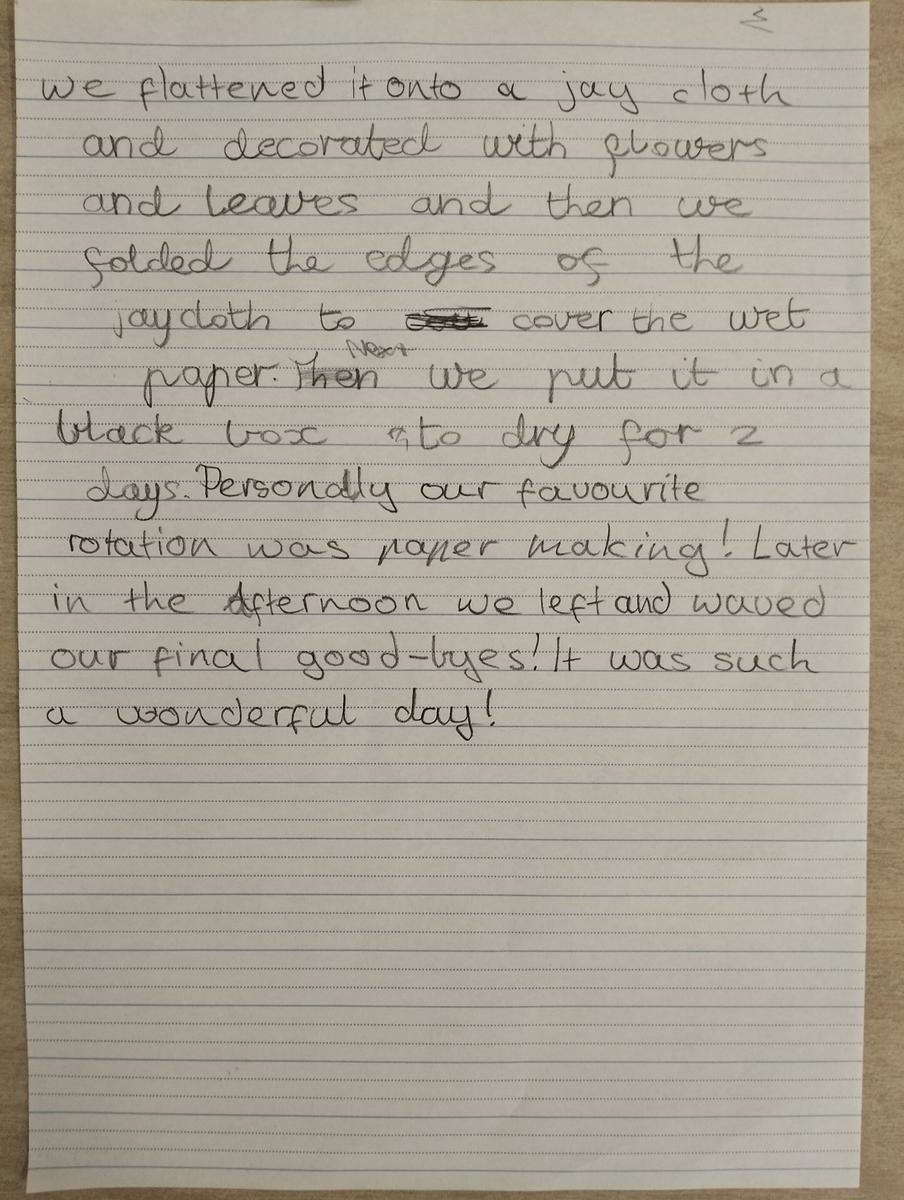 we flattened it onto a jay cloth
and decorated with flowers
and leaves and then we
folded the edges of the
jaycloth to cover the wet
Next
paper. Then we put it in a
black box to dry for 2
days. Personally our favourite
rotation was paper making! Later
in the Afternoon we left and waved
our final good-byes! It was such
a wonderful day!